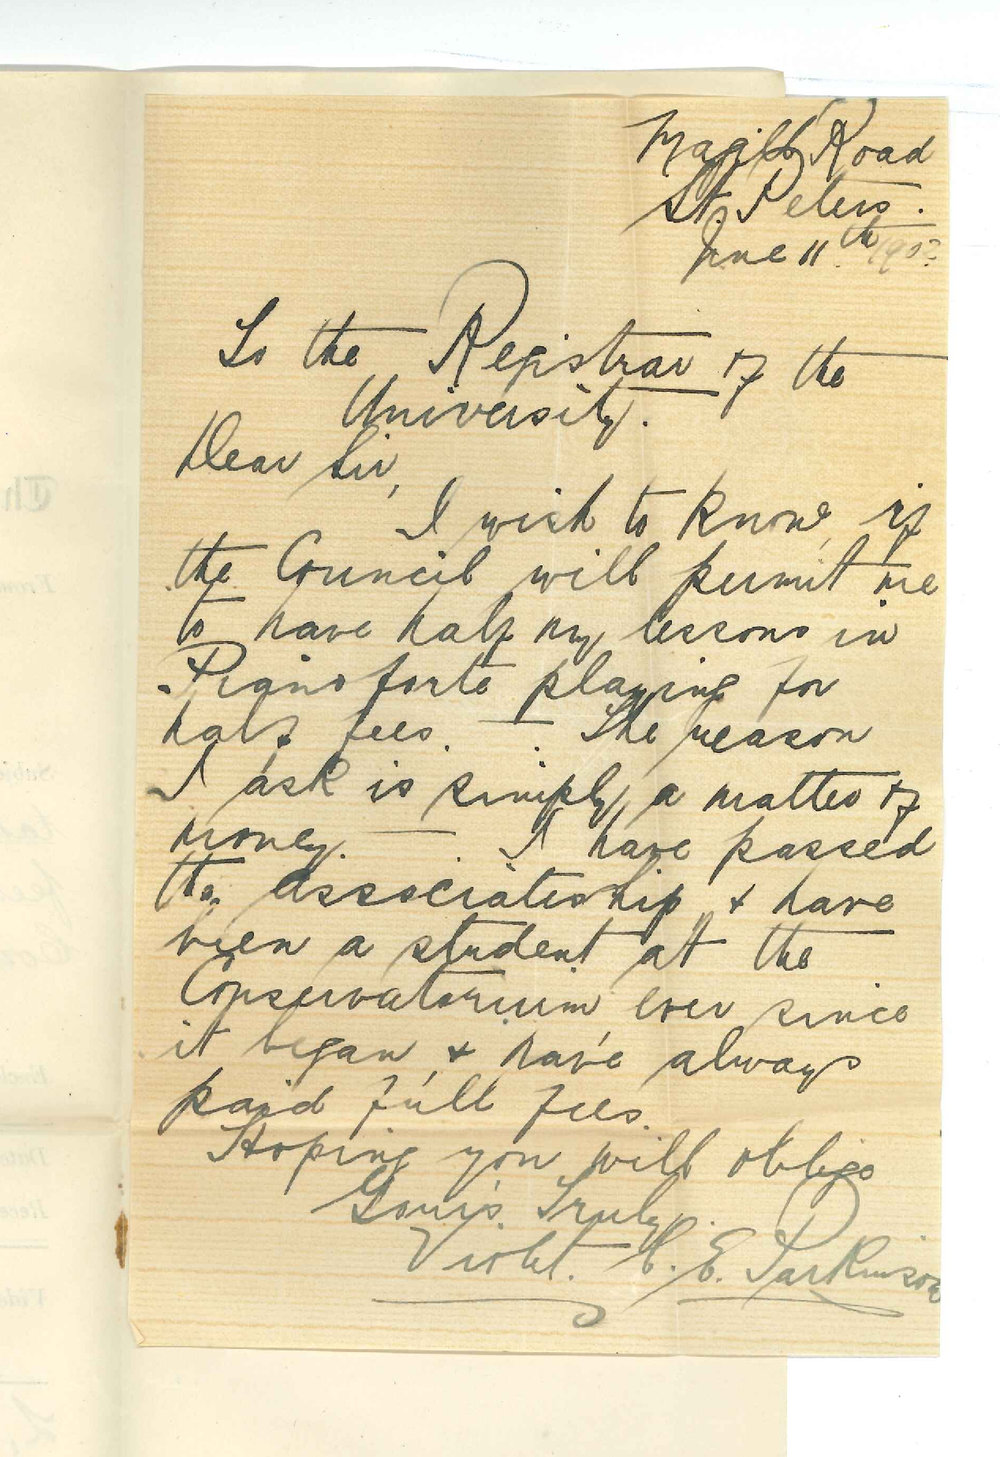 Magill Road
St. Peters.
June 11th 1902
To the Registrar of the
University.
Dear Sir,
I wish to know, if
the Council will permit me
to have half my lessons in
Pianoforte playing for
half fees. — The reason
I ask is simply a matter of
money. — I have passed
the associateship & have
been a student at the
Conservatorium ever since
it began, & have always
paid full fees.
Hoping you will oblige
Yours Truly.
Violet. C. E. Parkinson